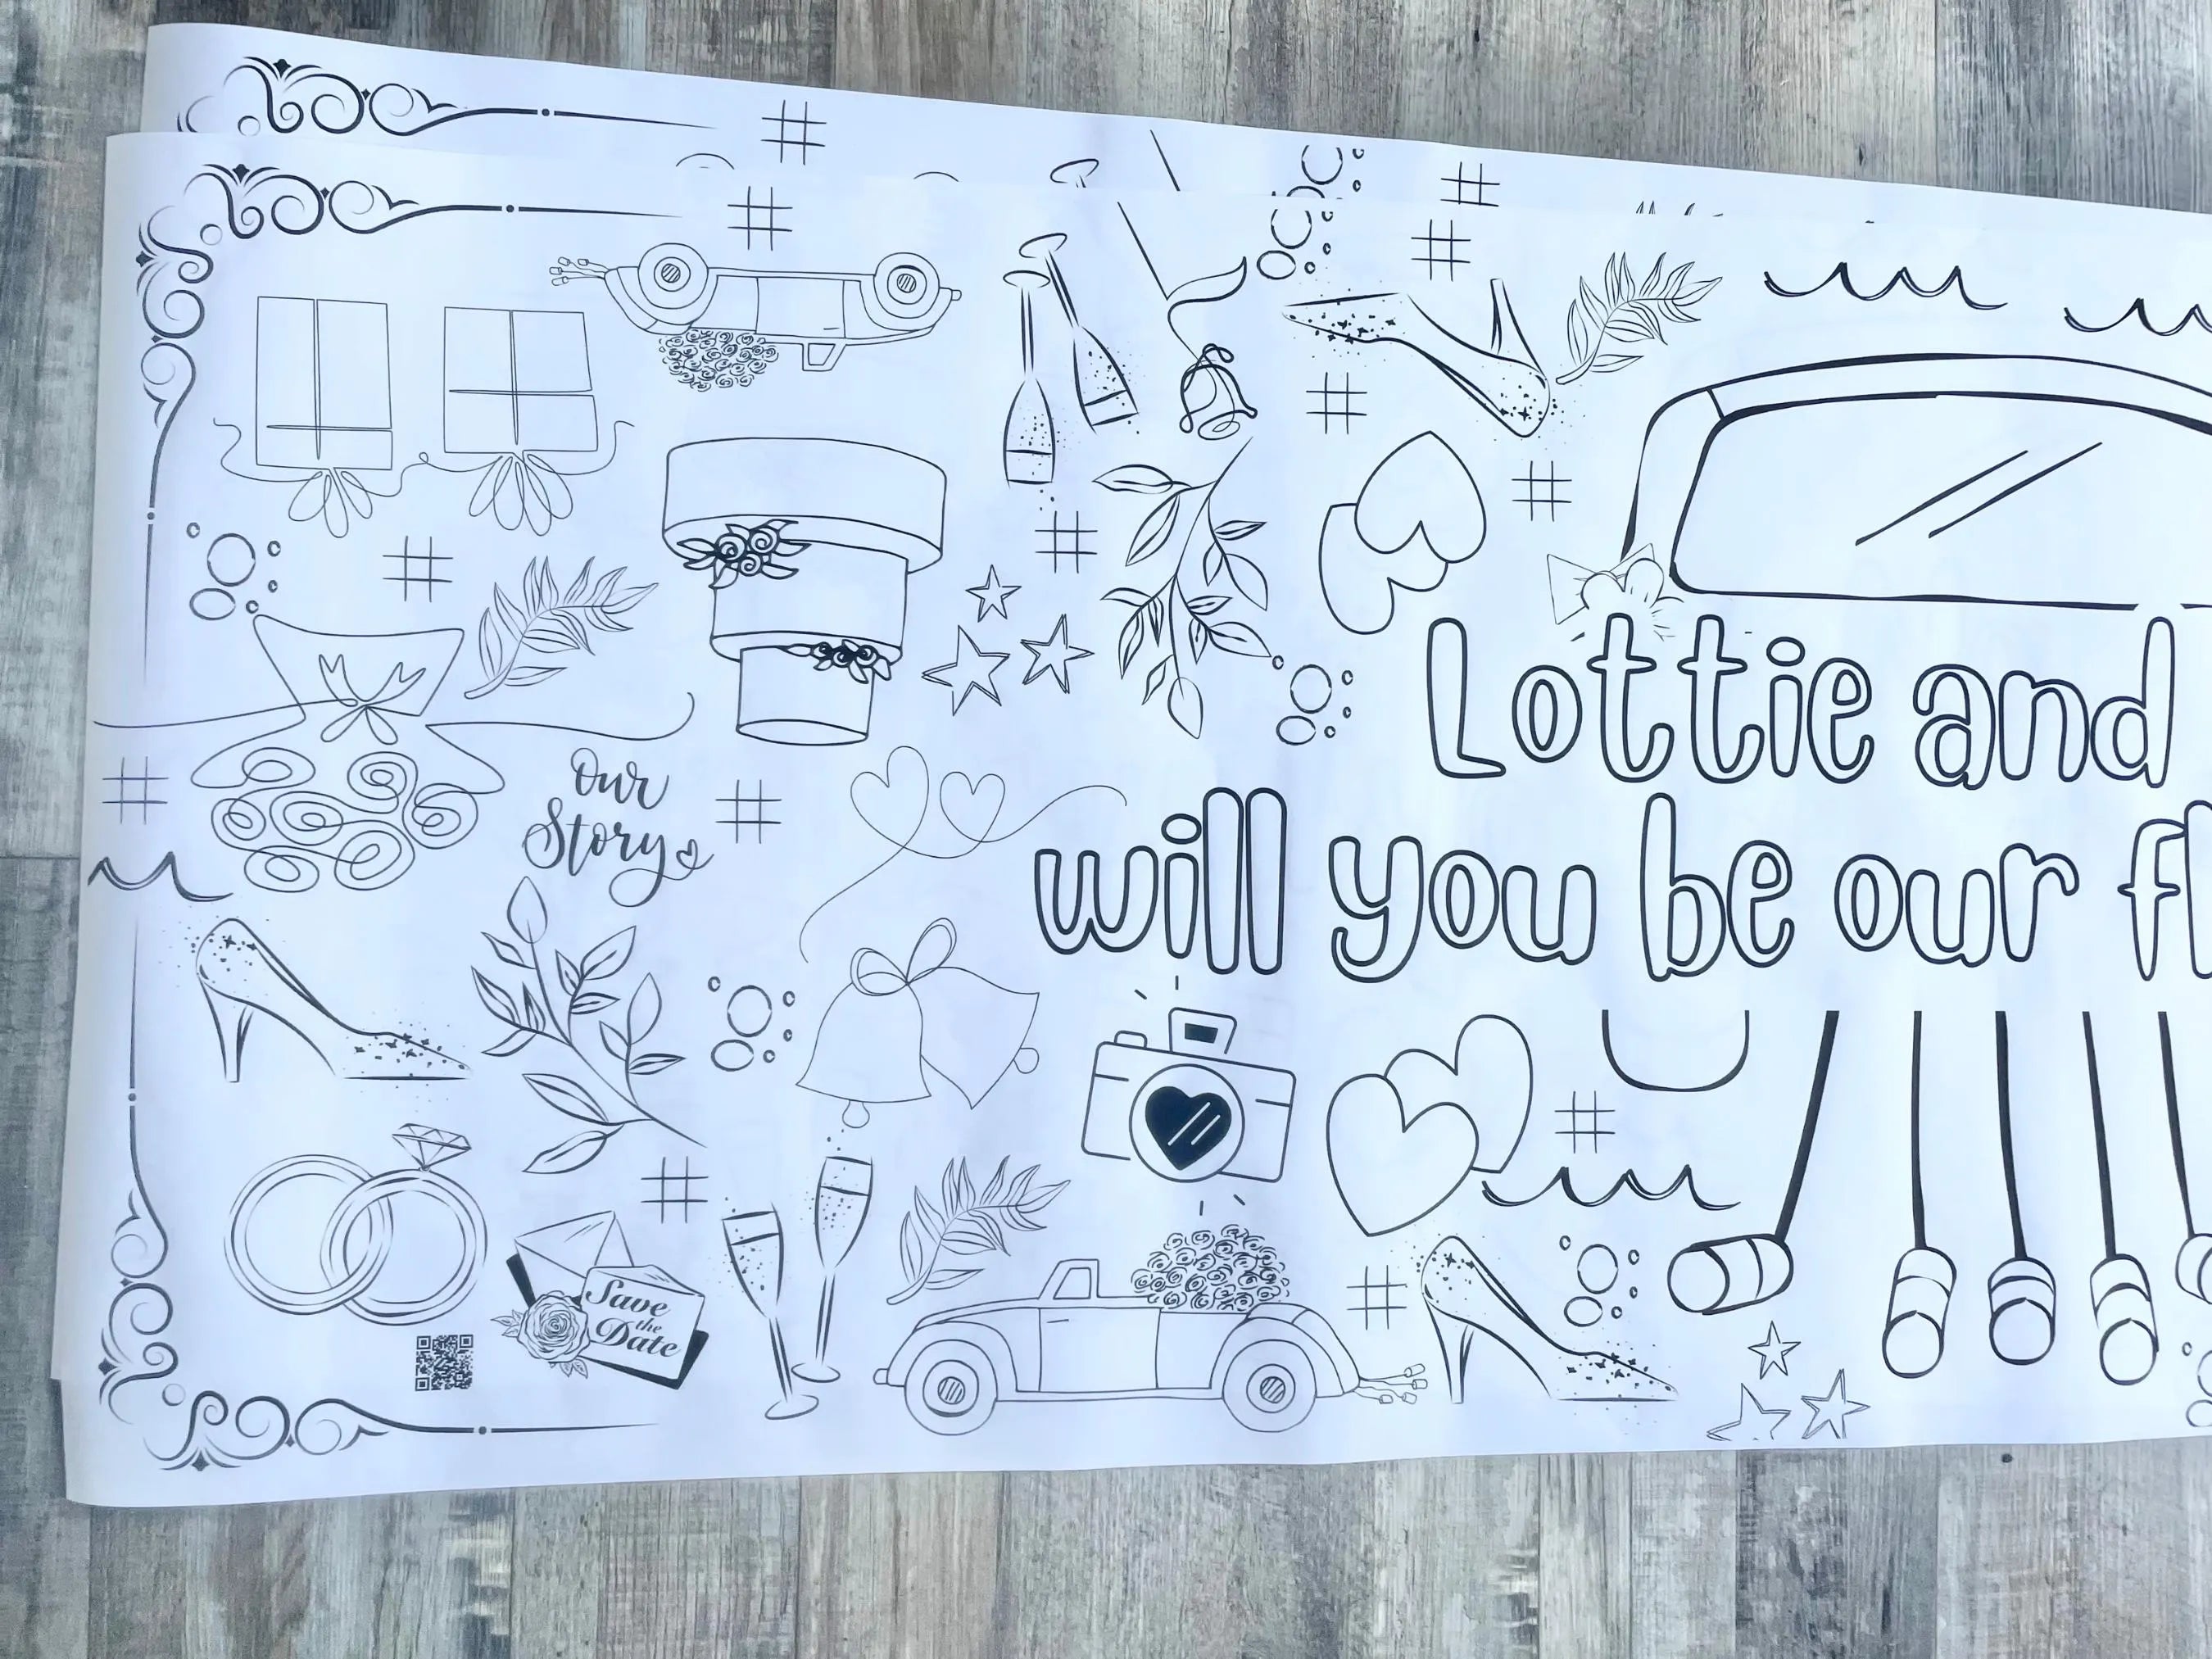 Lottie and
will you be our fl
Our
Story
Save
the
Date